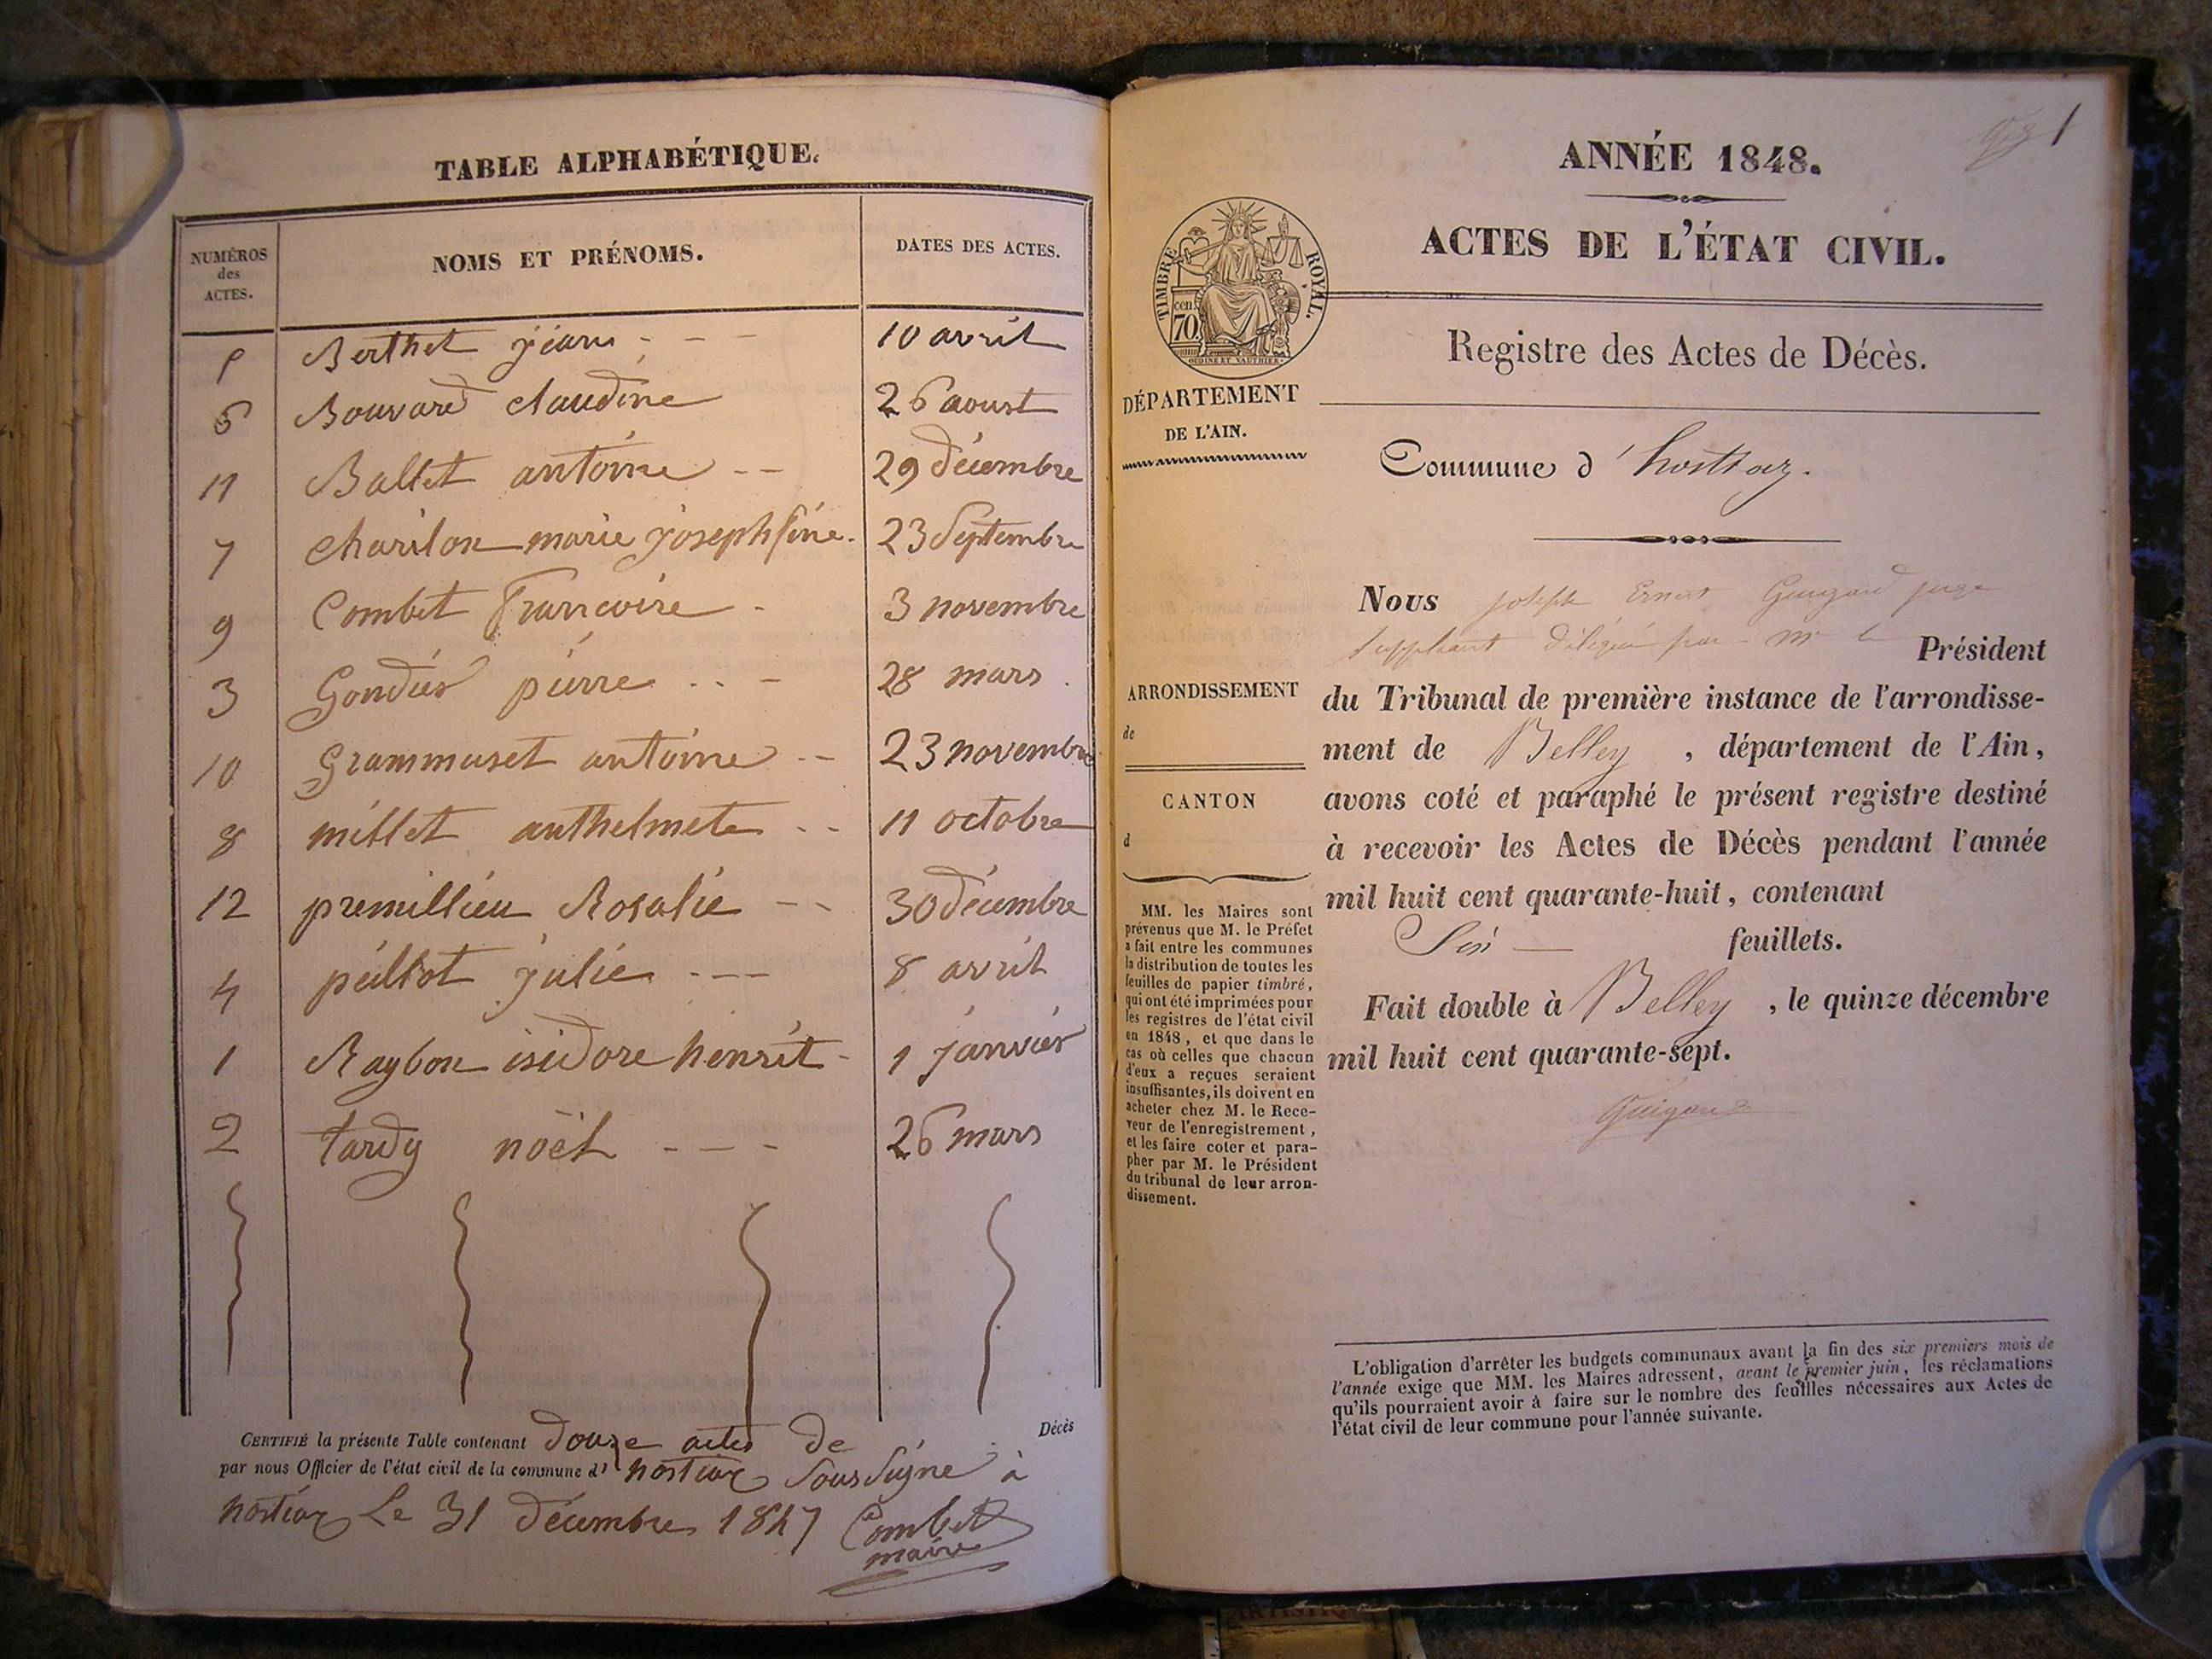 TABLE ALPHABÉTIQUE.
NUMÉROS des ACTES.
NOMS ET PRÉNOMS.
DATES DES ACTES.
5 Berthet jéan - - - 10 avril
6 Bouvard claudine 26 aoust
11 Ballet antoine - - 29 décembre
7 charilon marie josephfine. 23 Septembre
9 Combet Francoise - 3 novembre
3 Gondier pierre - - - 28 mars
10 Grammuset antoine - - 23 novembre
8 millet anthelmete - - 11 octobre
12 premillieu Rosalie - - 30 décembre
4 peillot julie - - - 8 avril
1 Raybon isidore henrit - 1 janvier
2 tardy noël - - - 26 mars
CERTIFIÉ la présente Table contenant douze actes de Décès
par nous Officier de l'état civil de la commune d' hostiaz Soussigne à
hostiaz Le 31 décembre 1847 Combet
maire
1
ANNÉE 1848.
ACTES DE L'ÉTAT CIVIL.
TIMBRE ROYAL.
70 cen.
OUDINE ET VAUTHIER.
Registre des Actes de Décès.
DÉPARTEMENT
DE L'AIN.
Commune d'hostiaz.
Nous joseph Ernest Guigard juge
suppléant délégué par mr le Président
du Tribunal de première instance de l'arrondisse-
ment de Belley, département de l'Ain,
avons coté et paraphé le présent registre destiné
à recevoir les Actes de Décès pendant l'année
mil huit cent quarante-huit, contenant
Six feuillets.
Fait double à Belley, le quinze décembre
mil huit cent quarante-sept.
ARRONDISSEMENT
de
CANTON
d
MM. les Maires sont
prévenus que M. le Préfet
a fait entre les communes
la distribution de toutes les
feuilles de papier timbré,
qui ont été imprimées pour
les registres de l'état civil
en 1848, et que dans le
cas où celles que chacun
d'eux a reçues seraient
insuffisantes, ils doivent en
acheter chez M. le Rece-
veur de l'enregistrement,
et les faire coter et para-
pher par M. le Président
du tribunal de leur arron-
dissement.
L'obligation d'arrêter les budgets communaux avant la fin des six premiers mois de
l'année exige que MM. les Maires adressent, avant le premier juin, les réclamations
qu'ils pourraient avoir à faire sur le nombre des feuilles nécessaires aux Actes de
l'état civil de leur commune pour l'année suivante.